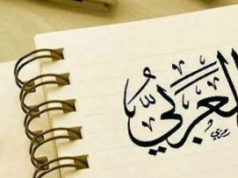 لعَرَبيُّ